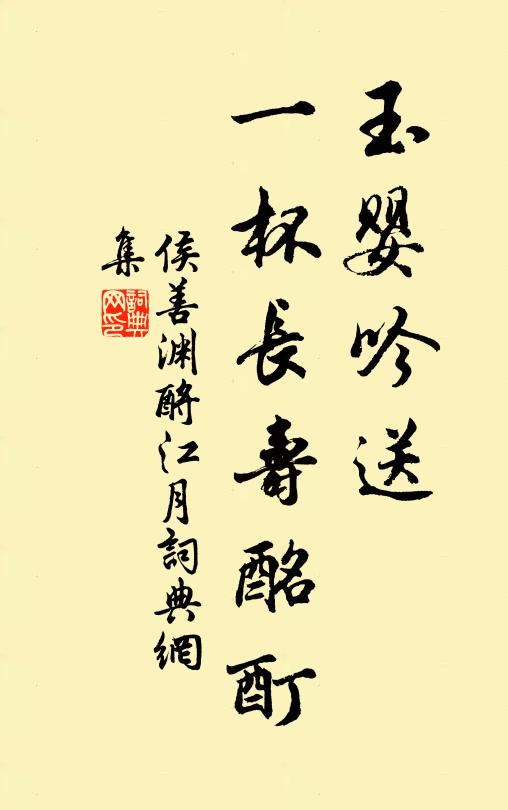 玉嬰吟送
一杯長壽酩酊
侯善渊酹江月詞典網
集
詞典
网印